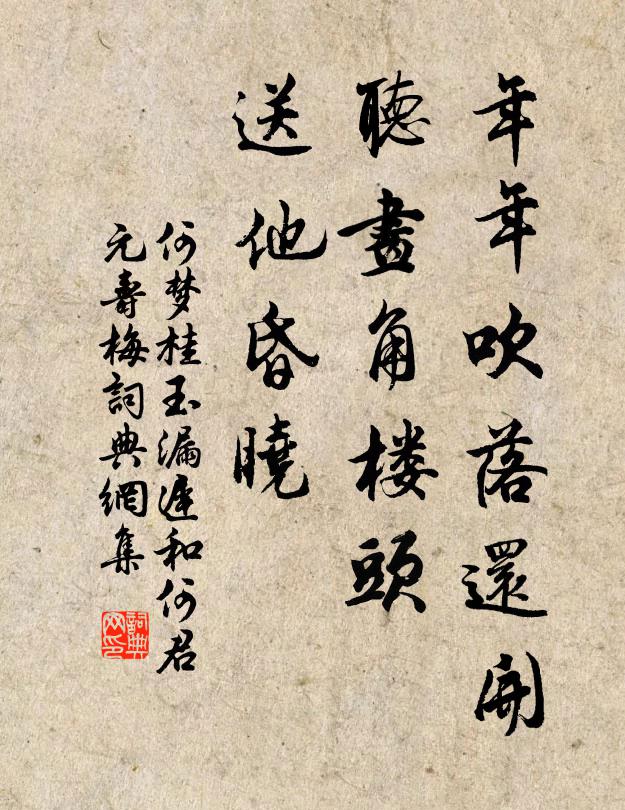 年年吹落還開
聽畫角楼頭
送他昏曉
何梦桂玉漏遲和何君
元壽梅詞典網集
詞典
网印